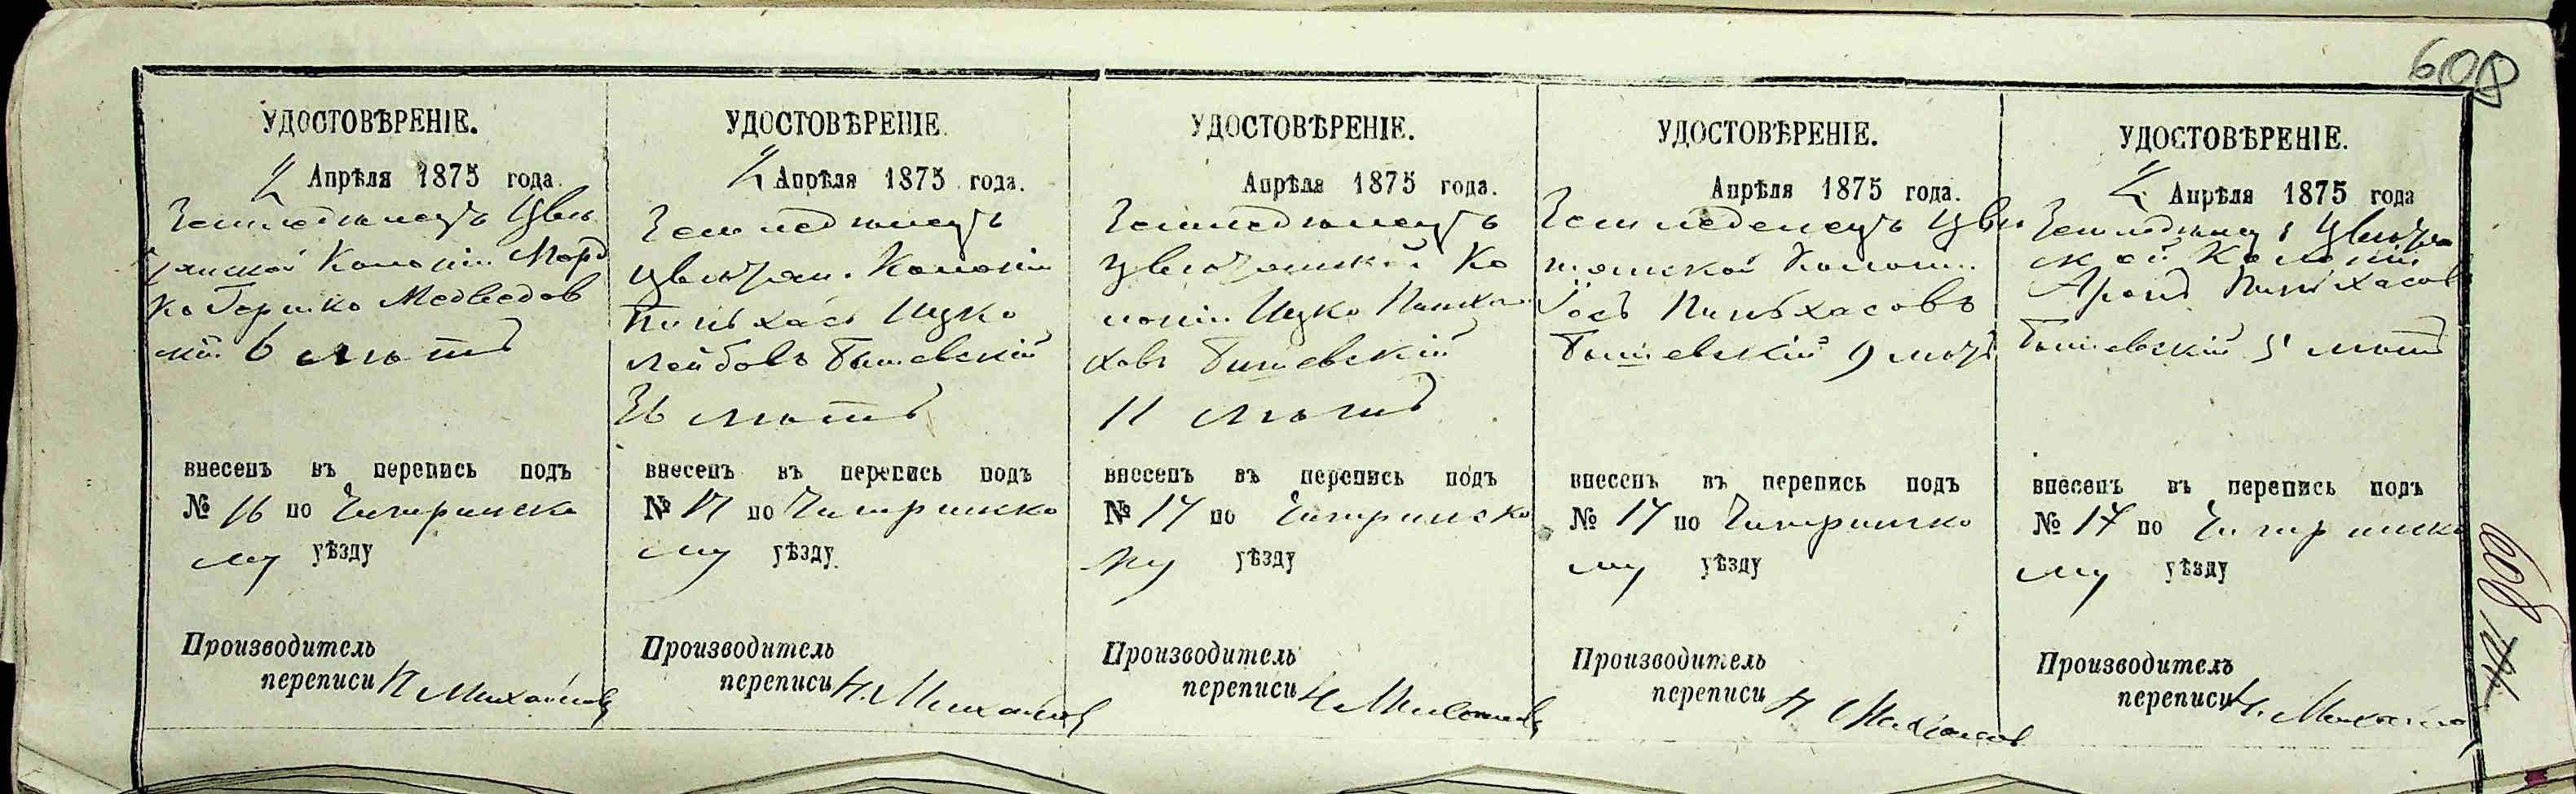 608
УДОСТОВѢРЕНІЕ.
2 Апрѣля 1875 года.
Земледелецъ Цвѣт
канской Колоніи Морд
ко Гершко Медведов
кій 6 лѣтъ
внесенъ въ перепись подъ
№ 16 по Чигринско
му уѣзду
Производитель
переписи Н Михайловъ
УДОСТОВѢРЕНІЕ
2 Апрѣля 1875 года.
Земледелецъ
Колоніи
Пинхасъ Ицко
Лейбовъ Бышевскій
36 лѣтъ
внесенъ въ перепись подъ
№ 17 по Чигринско
му уѣзду.
Производитель
переписи Н. Михайловъ
УДОСТОВѢРЕНІЕ.
Апрѣля 1875 года.
Земледелецъ
Ко
лоніи Ицко
ховъ Бышевскій
11 лѣтъ
внесенъ въ перепись подъ
№ 17 по Чигринско
му уѣзду
Производитель
переписи Н. Михайловъ
УДОСТОВѢРЕНІЕ.
Апрѣля 1875 года.
Земледелецъ Цвѣ
Колоніи
Іосъ Пинхасовъ
Бышевскій 9 лѣтъ
внесенъ въ перепись подъ
№ 17 по Чигринско
му уѣзду
Производитель
переписи Н Михайловъ
УДОСТОВѢРЕНІЕ.
2 Апрѣля 1875 года
Земледелецъ
ской Колоніи
Аронъ Пинхасов
Бышевскій 5 лѣтъ
внесенъ въ перепись подъ
№ 17 по Чигринско
му уѣзду
Производитель
переписи Н. Михайло
608